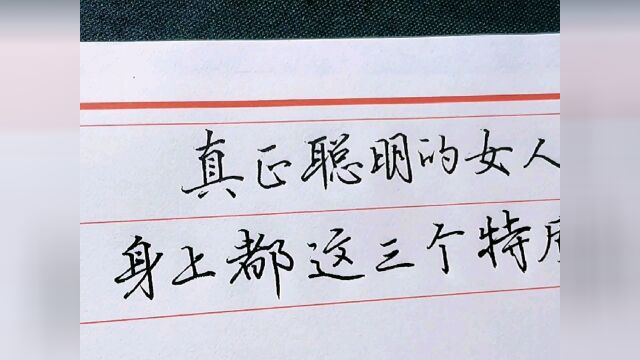 真正聪明的女人
身上都这三个特质